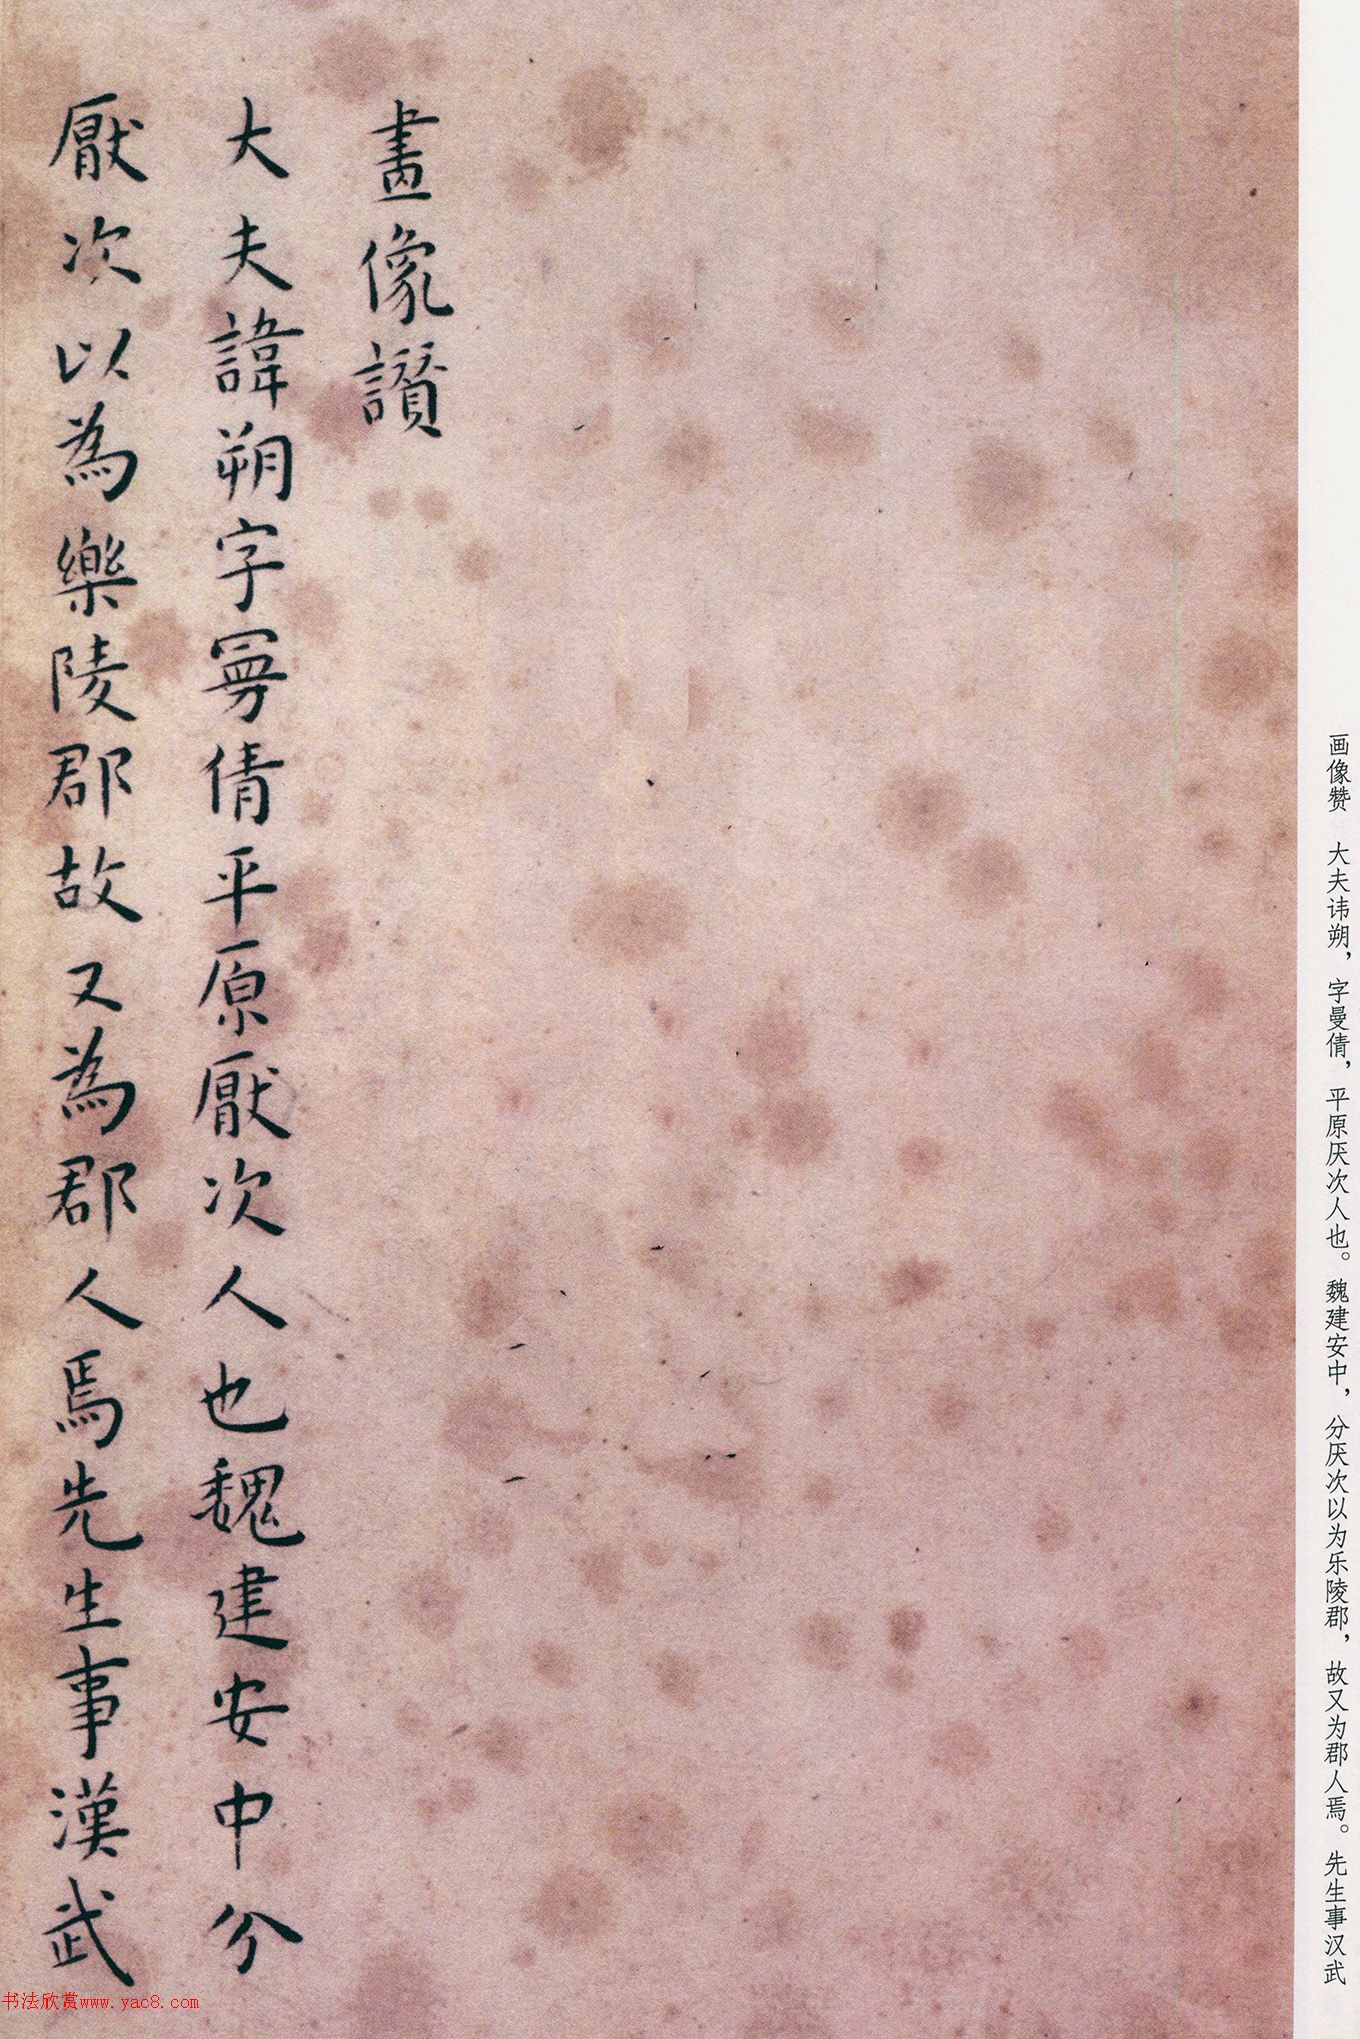 畫像讃
大夫諱朔字曼倩平原厭次人也魏建安中分
厭次以為樂陵郡故又為郡人焉先生事漢武
画像赞　大夫讳朔，字曼倩，平原厌次人也。魏建安中，分厌次以为乐陵郡，故又为郡人焉。先生事汉武
书法欣赏www.yac8.com